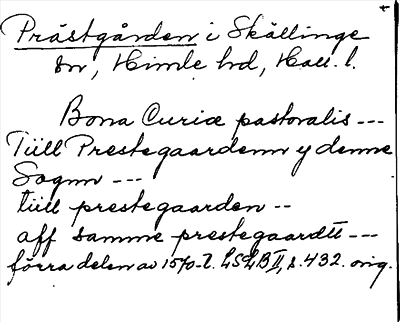 Prästgården i Skällinge
sn, Himle hd, Hall. l.
Bona Curiæ pastoralis ---
Tiill Prestegaardenn y denne
Sognn ---
tiill prestegaarden --
aff samme prestegaardtt ---
förra delen av 1570-t. LSLB II, s. 432. orig.